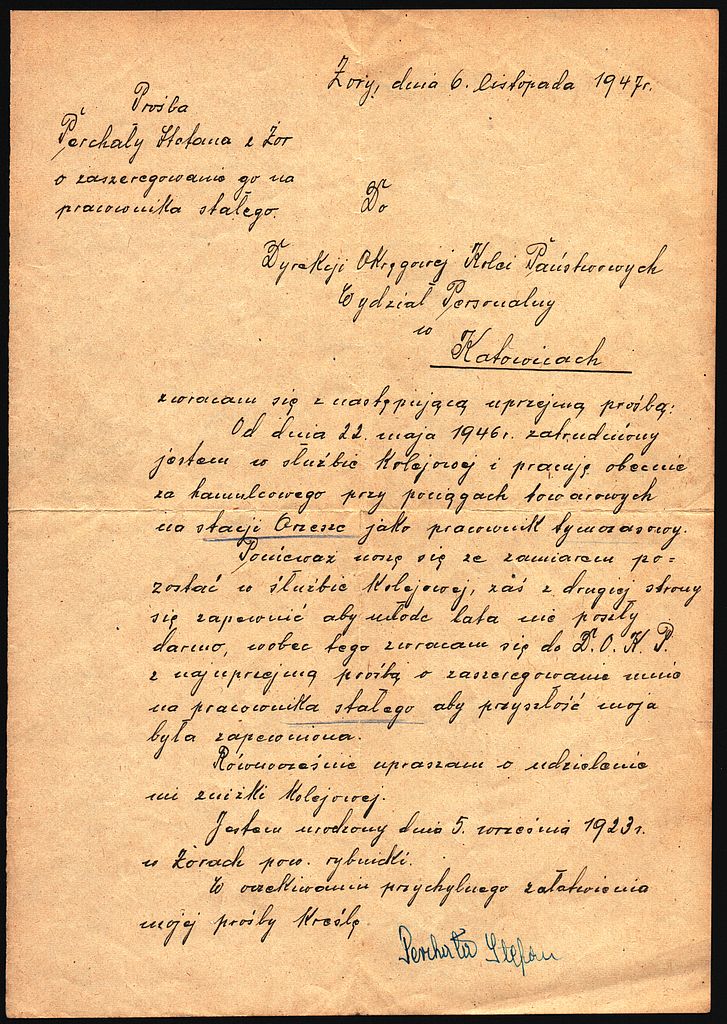 Żory, dnia 6. listopada 1947r.
Prośba
Perchały Stefana z Żor
o zaszeregowanie go na
pracownika stałego.
Do
Dyrekcji Okręgowej Kolei Państwowych
Wydział Personalny
w
Katowicach
zwracam się z następującą uprzejmą prośbą:
Od dnia 22. maja 1946r. zatrudniony
jestem w służbie kolejowej i pracuję obecnie
za hamulcowego przy pociągach towarowych
na stacji Orzesze jako pracownik tymczasowy.
Ponieważ noszę się ze zamiarem po=
zostać w służbie kolejowej, zaś z drugiej strony
się zapewnić aby młode lata nie poszły
darmo, wobec tego zwracam się do D.O.K.P.
z najuprzejmą prośbą o zaszeregowanie mnie
na pracownika stałego aby przyszłość moja
była zapewniona.
Równocześnie upraszam o udzielenie
mi zniżki kolejowej.
Jestem urodzony dnia 5. września 1923r.
w Żorach pow. rybnicki.
W oczekiwaniu przychylnego załatwienia
mojej prośby kreślę
Perchała Stefan